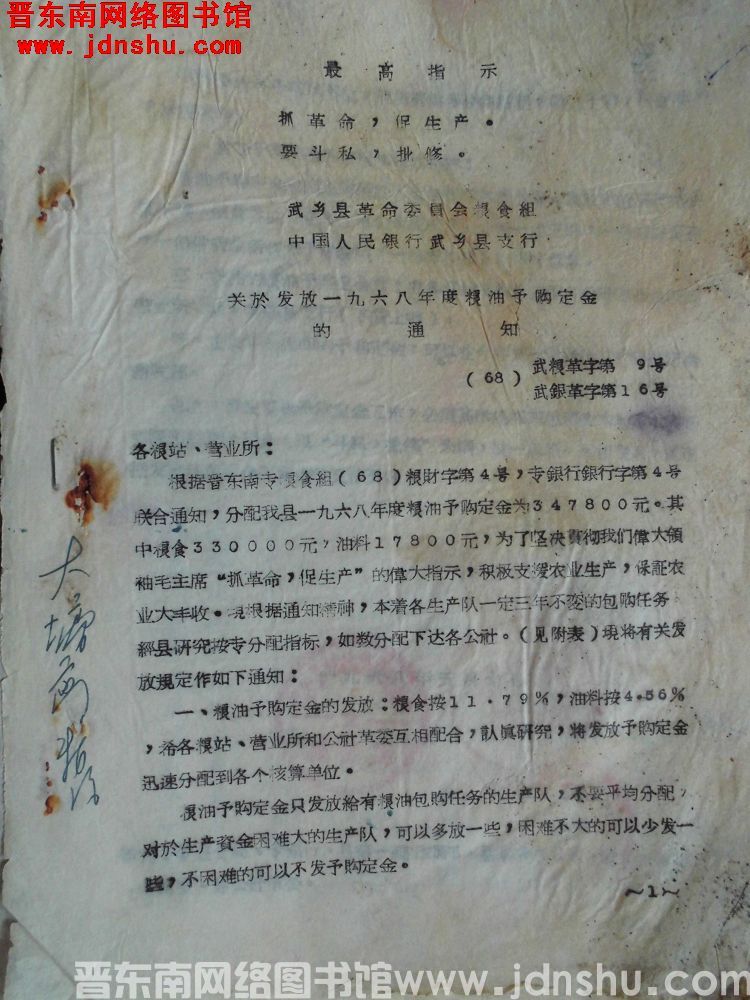 晋东南网络图书馆
www.jdnshu.com
最高指示
抓革命，促生产。
要斗私，批修。
武乡县革命委員会粮食組
中国人民銀行武乡县支行
关於发放一九六八年度粮油予购定金
的通知
(68) 武粮革字第9号
武銀革字第16号
各粮站、营业所：
根据晋东南专粮食組(68)粮財字第4号，专銀行銀行字第4号
联合通知，分配我县一九六八年度粮油予购定金为347800元。其
中粮食330000元，油料17800元，为了坚决貫彻我们偉大領
袖毛主席“抓革命，促生产”的偉大指示，积极支援农业生产，保証农
业大丰收。現根据通知精神，本着各生产队一定三年不变的包购任务
經县研究按专分配指标，如数分配下达各公社。(见附表)現将有关发
放規定作如下通知：
一、粮油予购定金的发放：粮食按11.79%，油料按4.56%
，希各粮站、营业所和公社革委互相配合，認眞研究，将发放予购定金
迅速分配到各个核算单位。
粮油予购定金只发放給有粮油包购任务的生产队，不要平均分配，
对於生产資金困难大的生产队，可以多放一些，困难不大的可以少发一
些，不困难的可以不发予购定金。
~1~
大
晋东南网络图书馆www.jdnshu.com